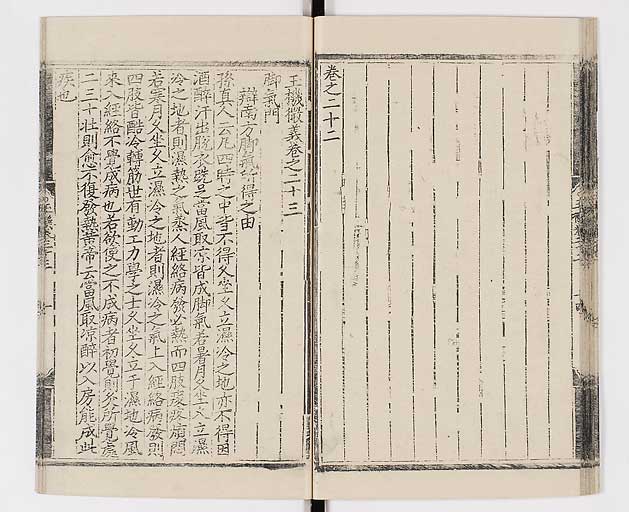 卷之二十二
玉機微義卷之二十三
脚氣門
辯南方脚氣所得之由
孫真人云凡四時之中皆不得久坐久立濕冷之地亦不得因
酒醉汗出脫衣跣足當風取凉皆成脚氣若暑月久坐久立濕
冷之地者則濕熱之氣蒸人經絡病發必熱而四肢痠疼煩悶
若寒月久坐久立濕冷之地者則濕冷之氣上入經絡病發則
四肢皆酷冷轉筋世有勤工力學之士久坐久立于濕地冷風
來入經絡不覺成病也若欲使之不成病者初覺則灸所覺處
二三十壯則愈不復發熱黃帝云當風取凉醉以入房能成此
疾也